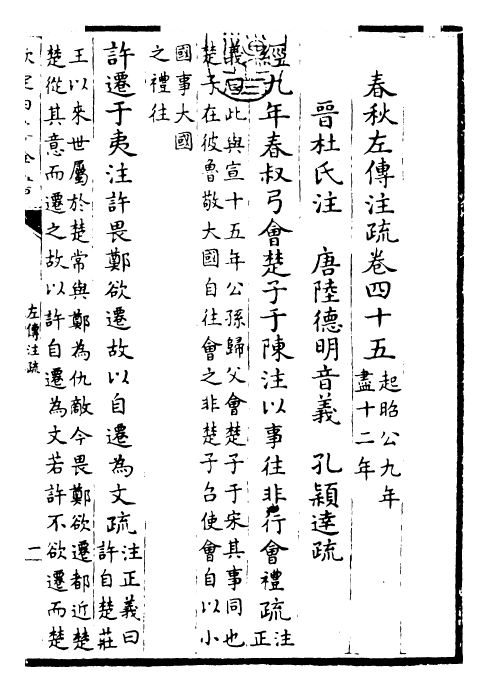 春秋左傳注疏卷四十五
起昭公九年
盡十二年
晉杜氏注　唐陸德明音義　孔穎達疏
經九年春叔弓會楚子于陳注以事往非行會禮疏
注
正
義曰此與宣十五年公孫歸父會楚子于宋其事同也
楚子在彼魯敬大國自往會之非楚子召使會自以小
國事大國
之禮往
許遷于夷注許畏鄭欲遷故以自遷為文疏
注正義曰
許自楚莊
王以來世屬於楚常與鄭為仇敵今畏鄭欲遷都近楚
楚從其意而遷之故以許自遷為文若許不欲遷而楚
左傳注疏
一